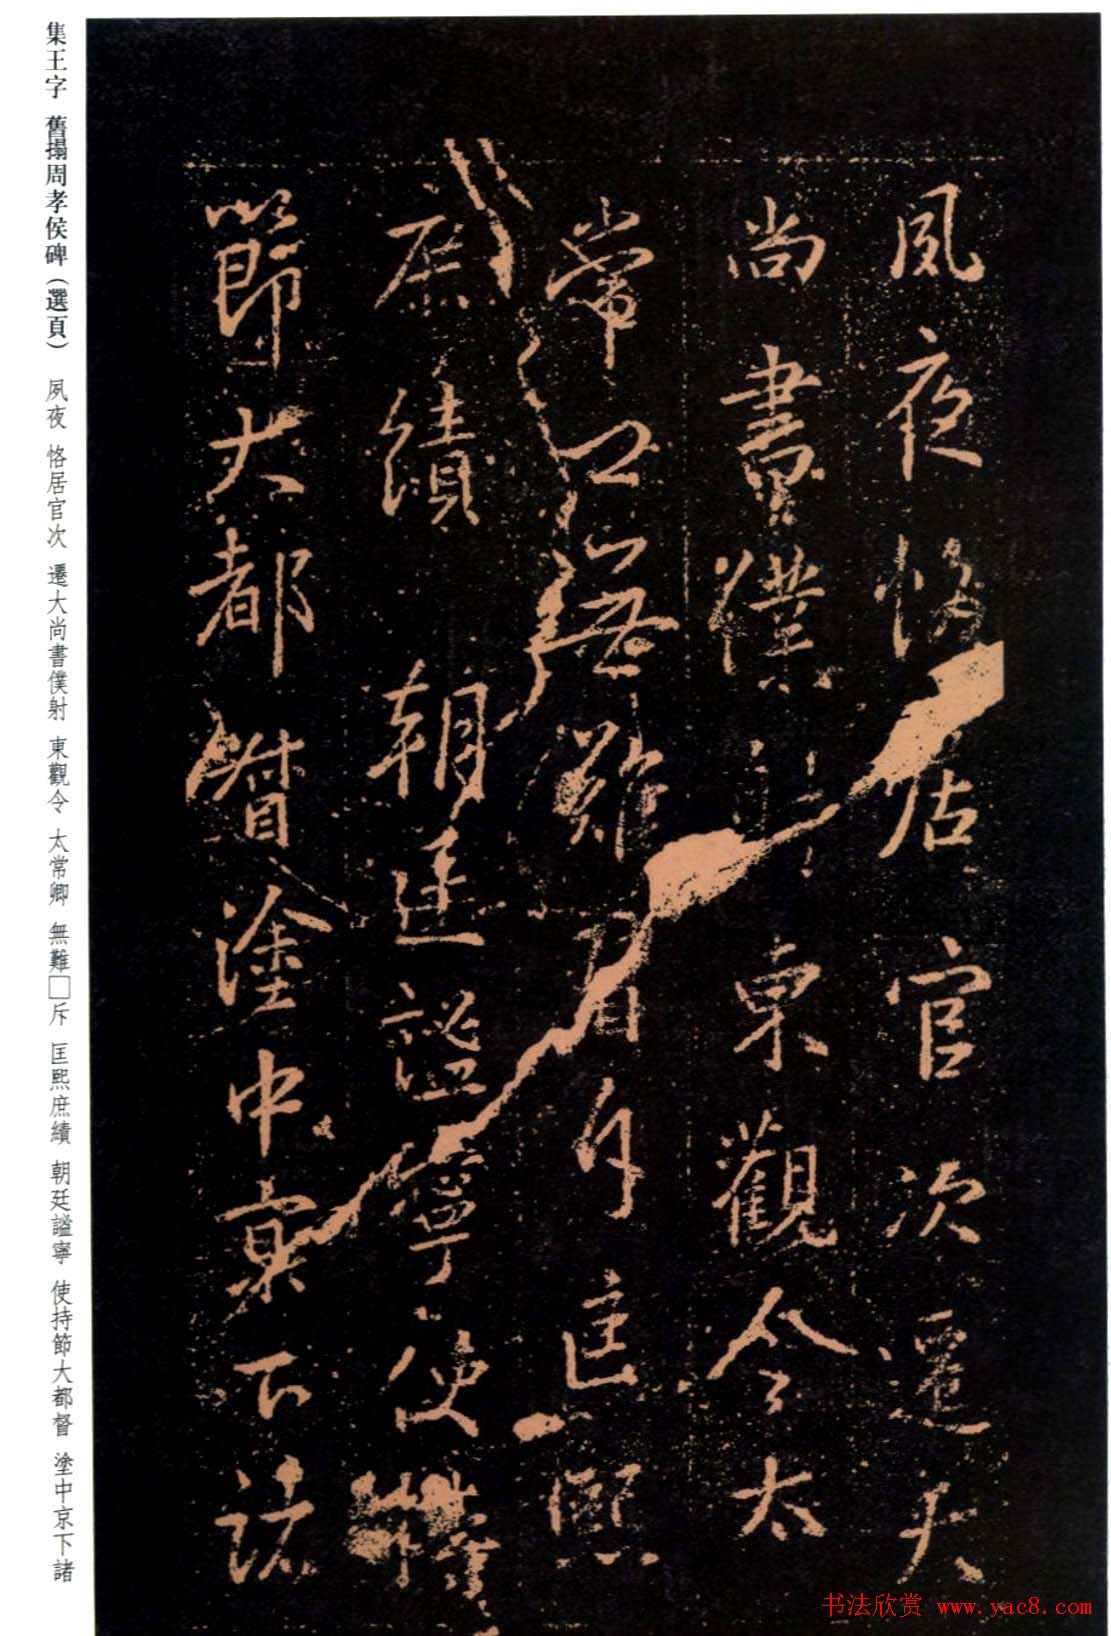 夙夜恪居官次遷大
尚書僕東觀令太
常卿無難斥匡熙
庶績朝廷謐寧使持
節大都督塗中京下諸
集王字 舊搨周孝侯碑（選頁） 夙夜 恪居官次 遷大尚書僕射 東觀令 太常卿 無難□斥 匡熙庶績 朝廷謐寧 使持節大都督 塗中京下諸
书法欣赏 www.yac8.com